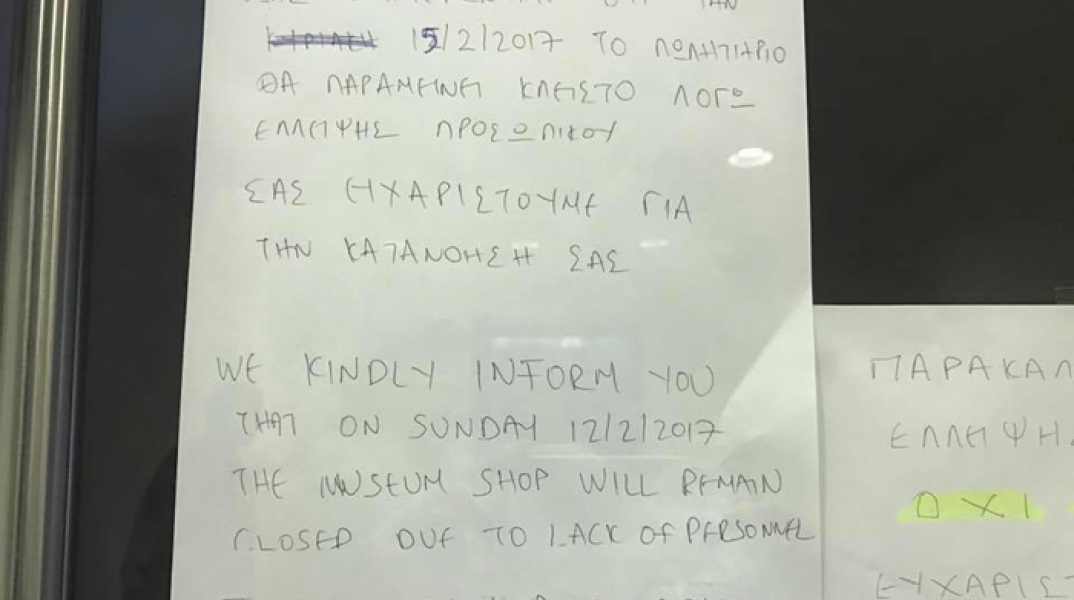 ΤΗΝ
ΚΥΡΙΑΚΗ 15/2/2017 ΤΟ ΠΩΛΗΤΗΡΙΟ
ΘΑ ΠΑΡΑΜΕΙΝΕΙ ΚΛΕΙΣΤΟ ΛΟΓΩ
ΕΛΛΕΙΨΗΣ ΠΡΟΣΩΠΙΚΟΥ
ΣΑΣ ΕΥΧΑΡΙΣΤΟΥΜΕ ΓΙΑ
ΤΗΝ ΚΑΤΑΝΟΗΣΗ ΣΑΣ
WE KINDLY INFORM YOU
THAT ON SUNDAY 12/2/2017
THE MUSEUM SHOP WILL REMAIN
CLOSED DUE TO LACK OF PERSONNEL
ΠΑΡΑΚΑΛ
ΕΛΛΕΙΨΗ
ΟΧΙ
ΕΥΧΑΡΙΣΤ